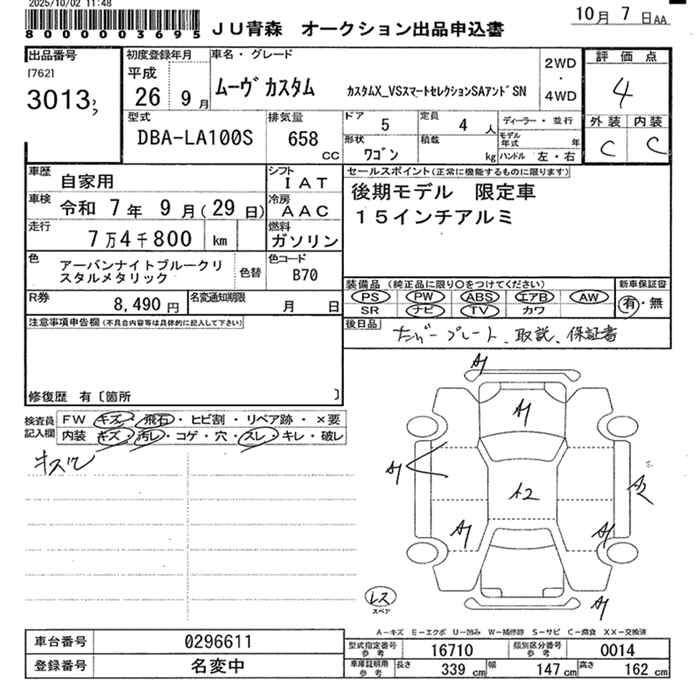 2025/10/02 11:48
8000000003695
JU青森 オークション出品申込書
10月 7日AA
出品番号
[762]
3013
初度登録年月
平成
26 9月
車名・グレード
ムーヴ カスタム
カスタムX_VSスマートセレクションSAアンドSN
2WD
・
4WD
評価点
4
外装 内装
C C
型式
DBA-LA100S
排気量
658
CC
ドア 5
定員 4人
形状 ワゴン
積載 kg
ディーラー・並行
モデル年式 年
ハンドル 左・右
車歴
自家用
シフト
IAT
車検
令和 7年 9月(29日)
冷房
AAC
走行
7万4千800 km
燃料
ガソリン
色
アーバンナイトブルークリ
スタルメタリック
色替
色コード
B70
セールスポイント(正常に機能するものに限ります)
後期モデル 限定車
15インチアルミ
R券
8,490円
名変通知期限
月 日
装備品 (純正品に限り○をつけてください)
PS PW ABS エアB AW
SR ナビ TV カワ
新車保証書
有・無
後日品
ナンバープレート、取説、保証書
注意事項申告欄(不具合内容等は具体的に記入して下さい)
修復歴 有〔箇所 〕
検査員
記入欄
FW キズ・飛石・ヒビ割・リペア跡・×要
内装 キズ・汚レ・コゲ・穴・スレ・キレ・破レ
キスレ
A1
A1
A1
A2
A2
A1
A1
A1
レス
スペア
A-キズ E-エクボ U-凹み W-補修跡 S-サビ C-腐食 XX-交換済
車台番号
0296611
登録番号
名変中
型式指定番号
参考
16710
類別区分番号
参考
0014
車庫証明用
参考
長さ 339 cm
幅 147 cm
高さ 162 cm